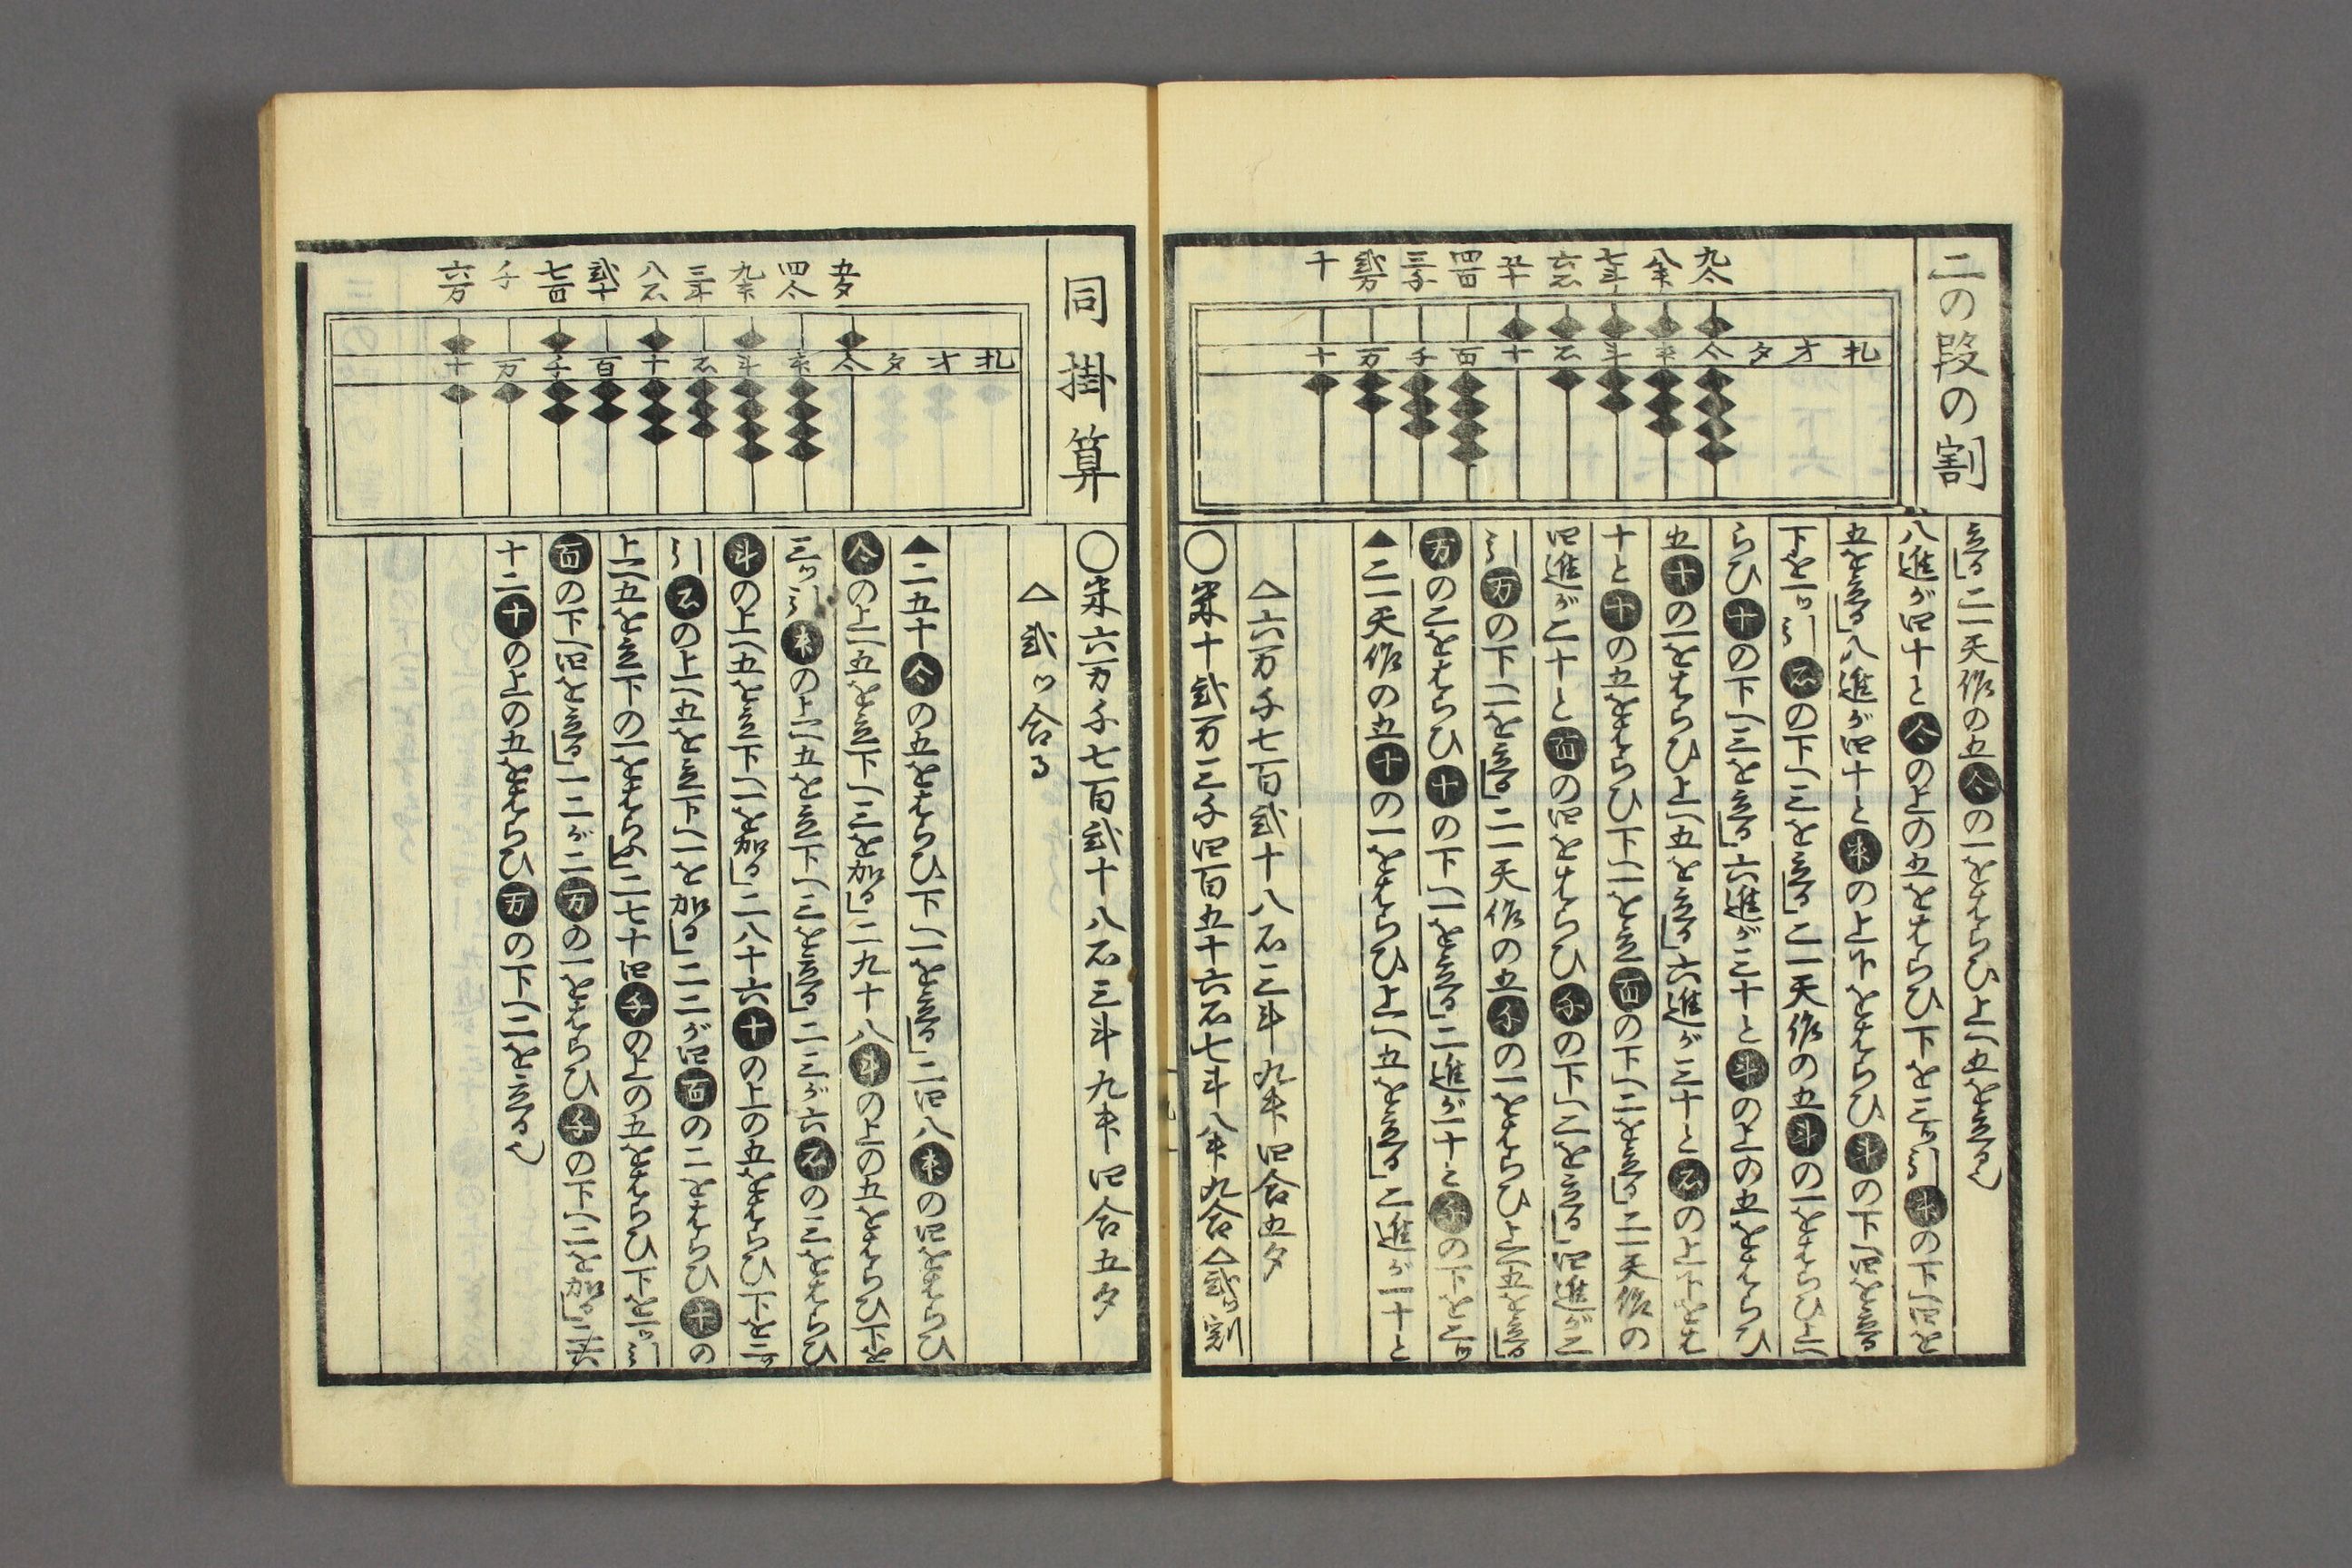 二の段の割
十 弐万 三千 四百 五十 六石 七斗 八升 九合
十 万 千 百 十 石 斗 升 合 夕 才 札
○米十弐万三千四百五十六石七斗八升九合△弐ッ割
△六万千七百弐十八石三斗九升四合五夕
▲二一天作の五十の一をはらひ上へ五を立る」二進が一十と
万の二をはらひ十の下へ一を立る」二進が一十と千の下を二ッ
引万の下へ一を立る」二一天作の五千の一をはらひ上へ五を立る」
四進が二十と百の四をはらひ千の下へ二を立る」四進が二
十と十の五をはらひ下へ一を立百の下へ二を立る」二一天作の
五十の一をはらひ上へ五を立る」六進が三十と石の上下をは
らひ十の下へ三を立る」六進が三十と斗の上の五をはらひ
下を一ッ引石の下へ三を立る」二一天作の五斗の一をはらひ上へ
五を立る」八進が四十と升の上下をはらひ斗の下へ四を立る
八進が四十と合の上の五をはらひ下を三ッ引升の下へ四を
立る」二一天作の五合の一をはらひ上へ五を立る也
同掛算
六万 千 七百 弐十 八石 三斗 九升 四合 五夕
十 万 千 百 十 石 斗 升 合 夕 才 札
○米六万千七百弐十八石三斗九升四合五夕
△弐ッ合る
▲二五十合の五をはらひ下へ一を立る」二四八升の四をはらひ
合の上へ五を立下へ三を加る」二九十八斗の上の五をはらひ下を
三ッ引升の上へ五を立下へ三を立る」二三が六石の三をはらひ
斗の上へ五を立下へ一を加る」二八十六十の上の五をはらひ下を二ッ
引石の上へ五を立下へ一を加る」二二が四百の二をはらひ十の
上へ五を立下の一をはらふ」二七十四千の上の五をはらひ下を一ッ引
百の下へ四を立る」一二が二万の一をはらひ千の下へ二を加る」二六
十二十の上の五をはらひ万の下へ二を立る也